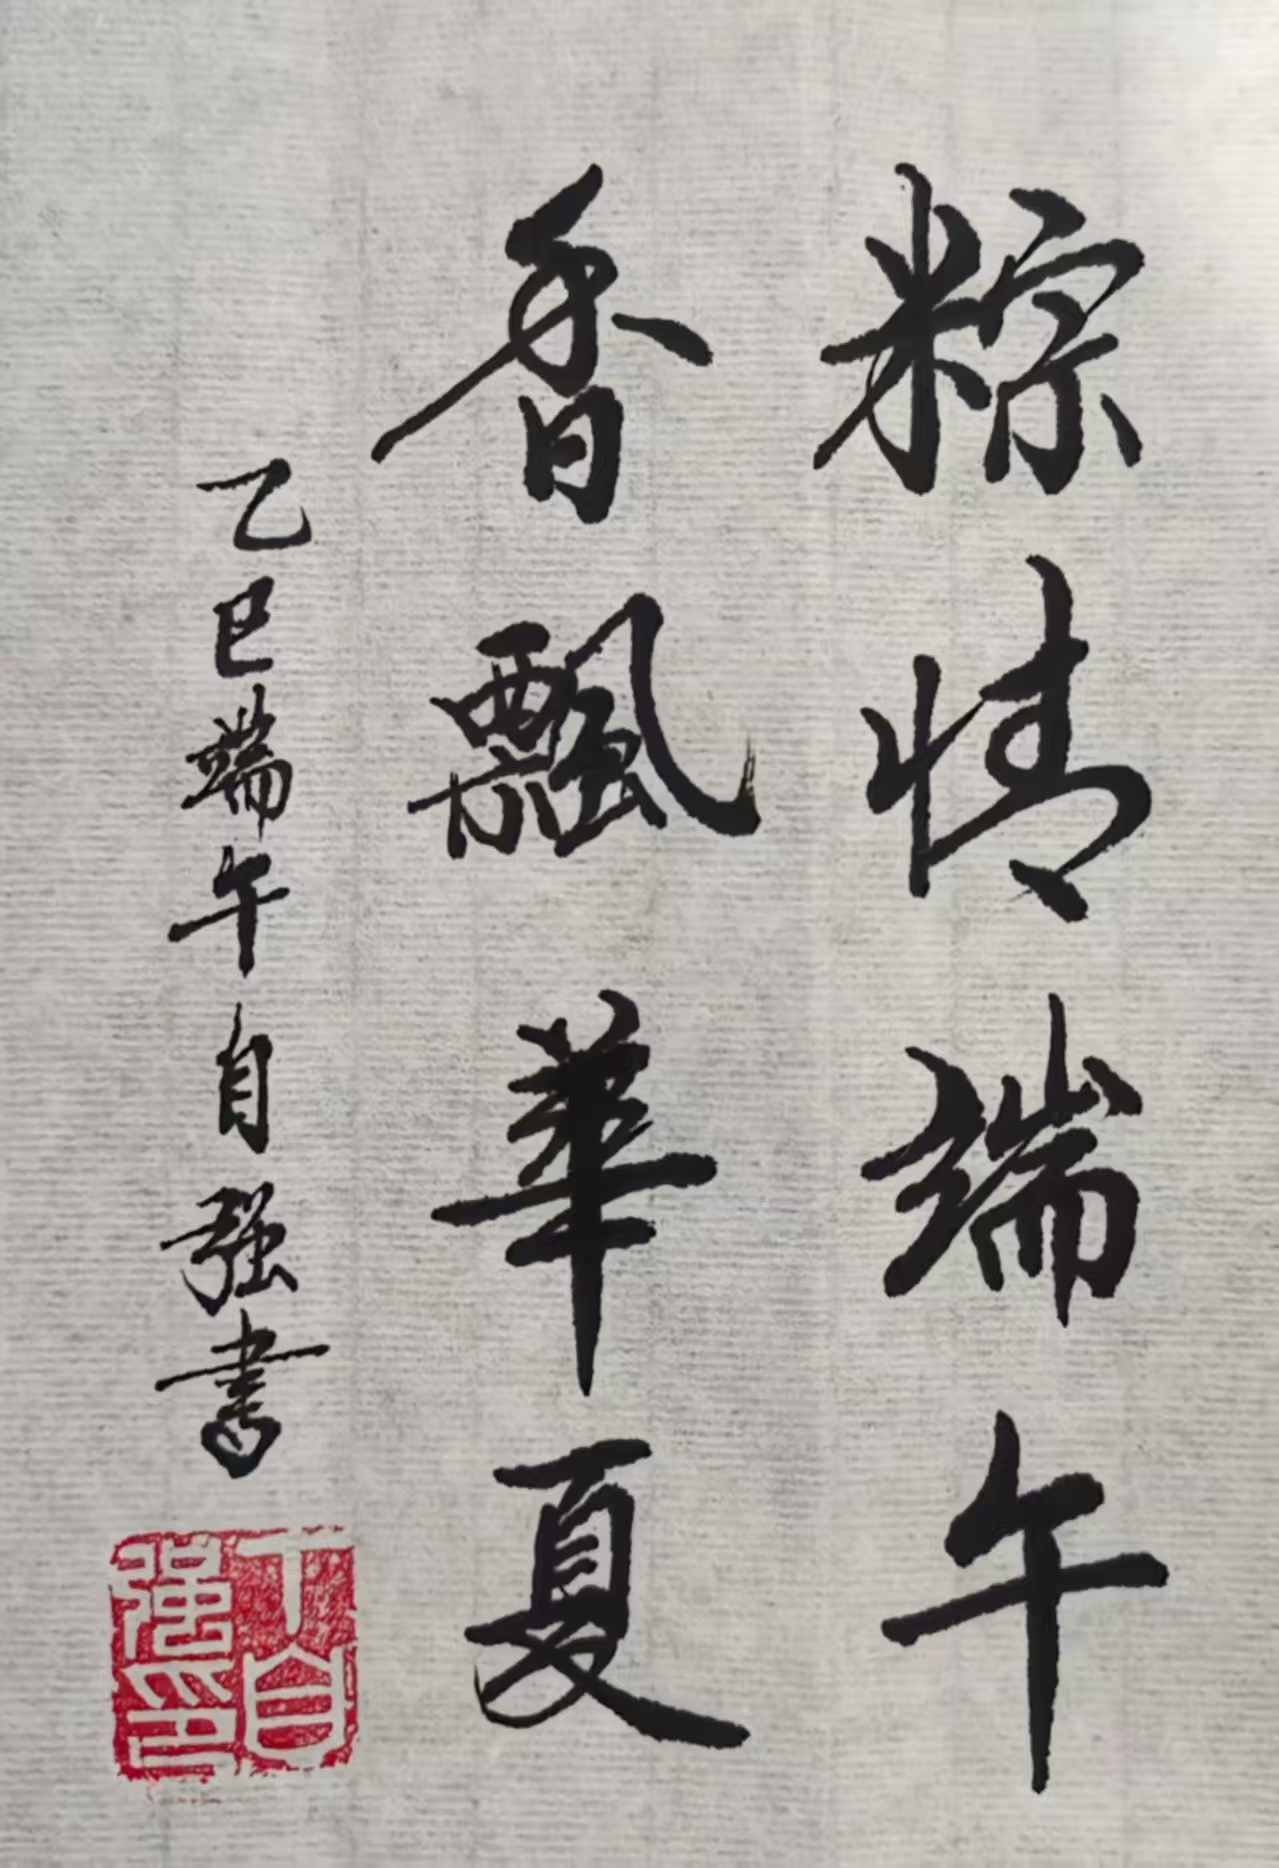 粽情端午
香飄華夏
乙巳端午自强書
丁自强印